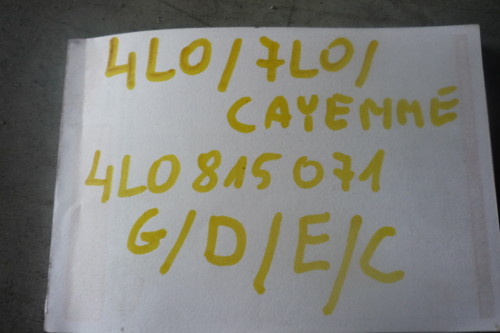 4L0/7L0/
CAYEMMÉ
4L0815071
G/D/E/C